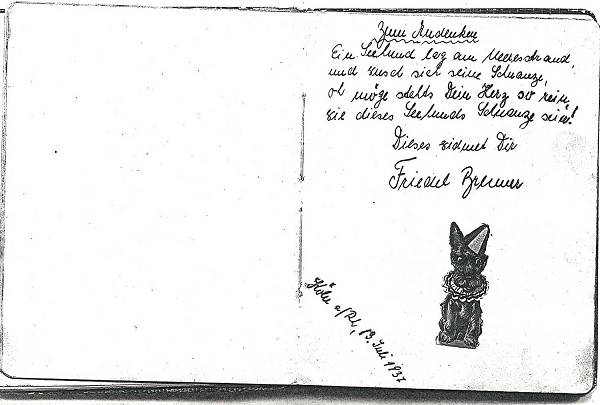 Zum Andenken
Ein Seehund lag am Meeresstrand,
und wusch sich seine Schnauze,
oh möge stehts Dein Herz so rein,
wie dieses Seehunds Schnauze sein!
Dieses widmet Dir
Friedel Bremer
Köln a/Rh, 19. Juli 1937